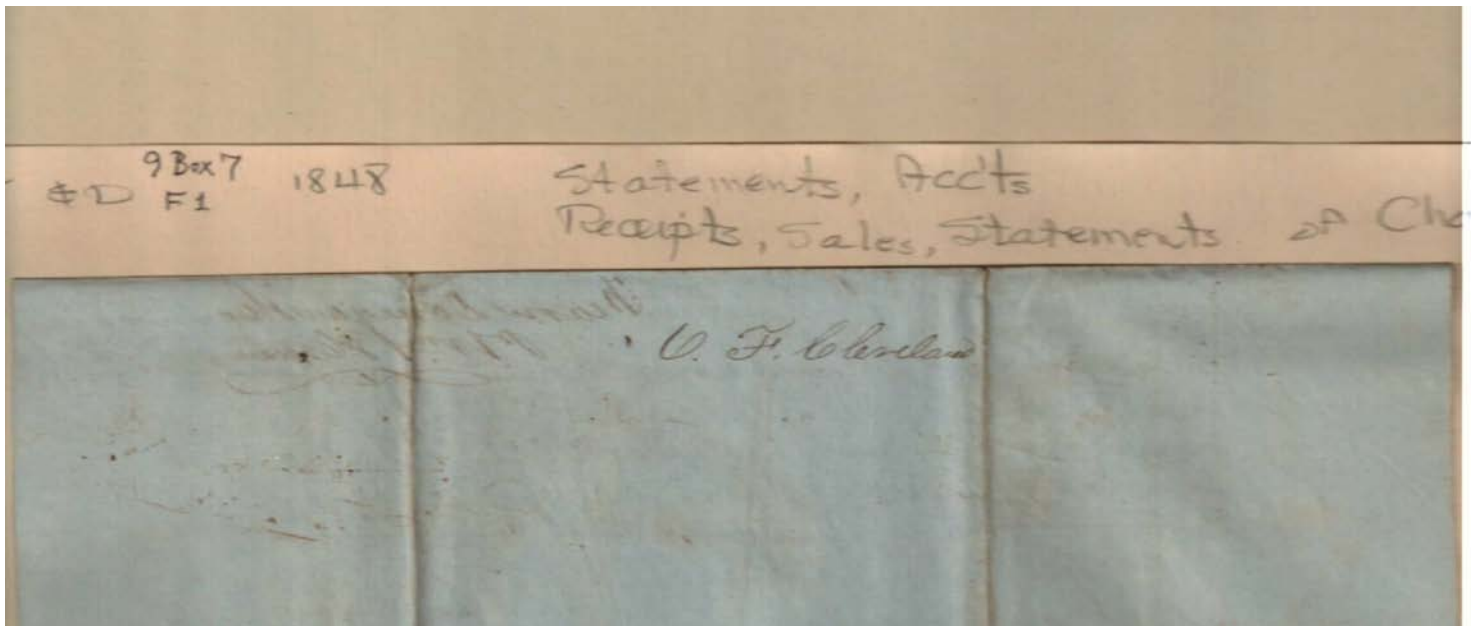 & D 9 Box 7 1848 Statements, Acc'ts
F1 Receipts, Sales, Statements of
C. F. Cleveland